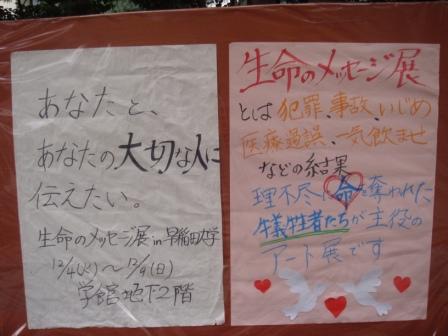 あなたと、
あなたの大切な人に
伝えたい。
生命のメッセージ展 in 早稲田大学
12/4(火)〜12/9(日)
学館地下2階
生命のメッセージ展
とは 犯罪、事故、いじめ
医療過誤、一気飲ませ
などの結果
理不尽に命を奪われた
犠牲者たちが主役の
アート展です